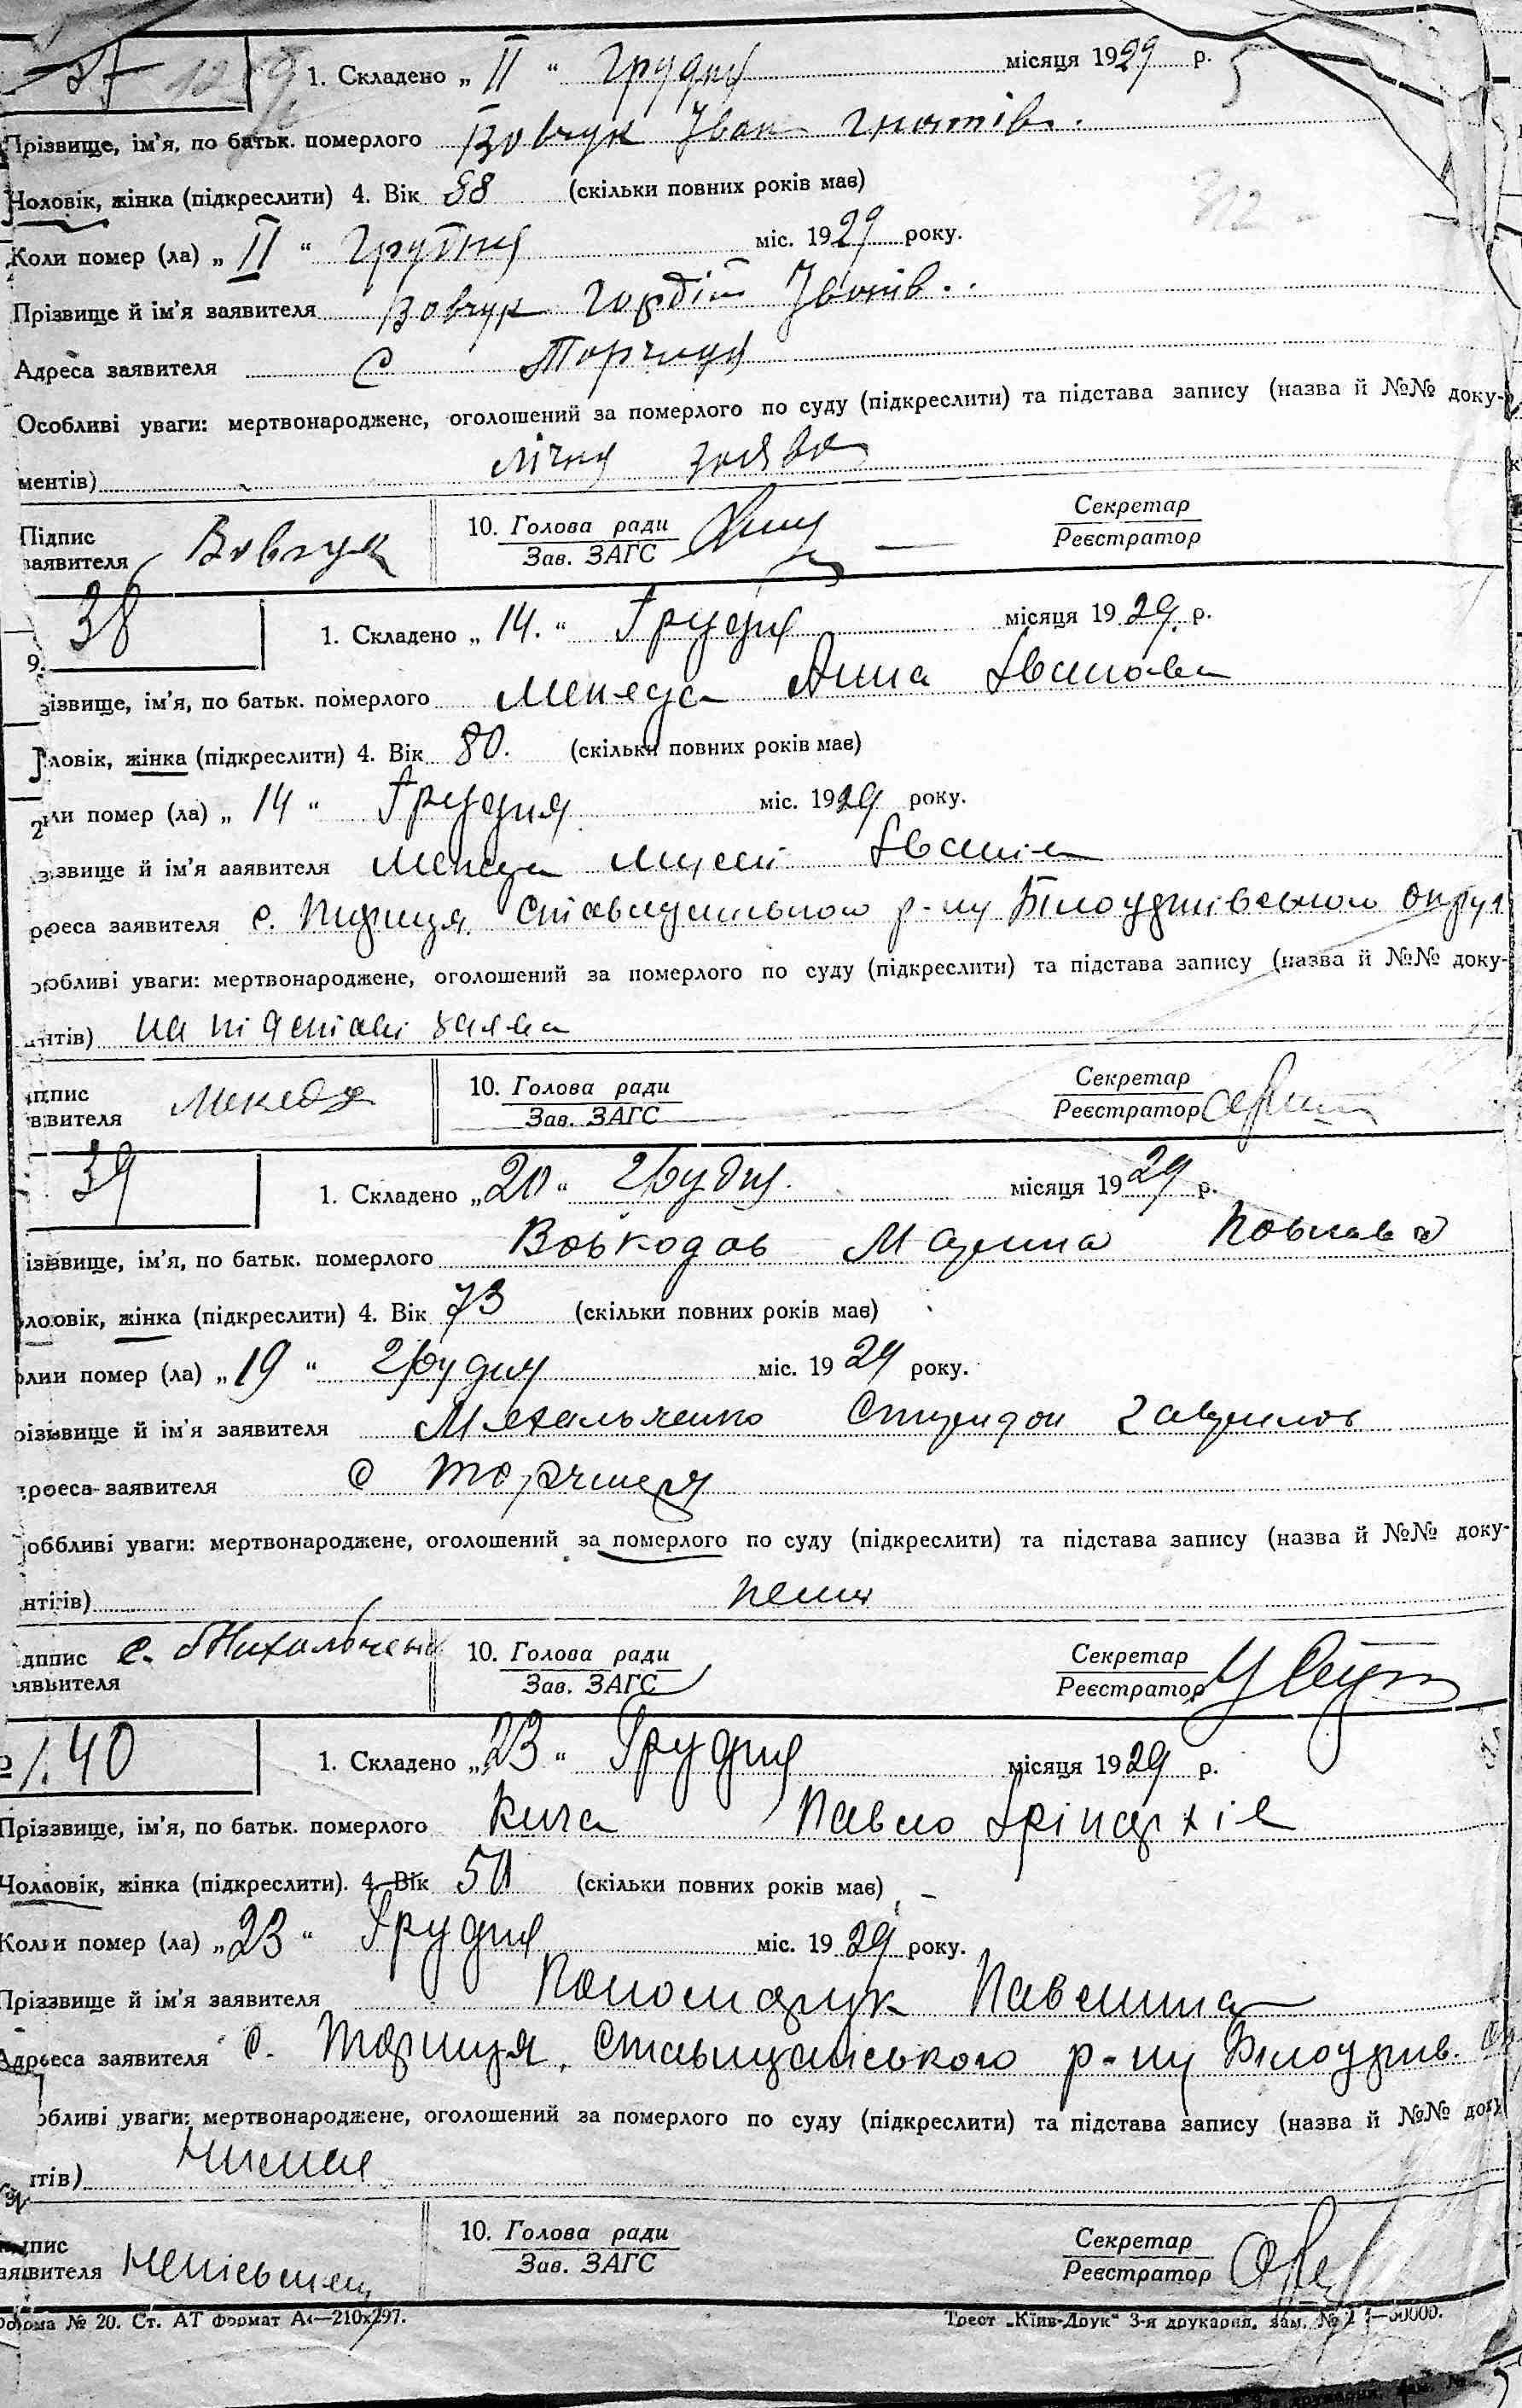 37
1. Складено „ II “ грудня місяця 1929 р.
Прізвище, ім'я, по батьк. померлого Вовчук Іван Гнатів.
Чоловік, жінка (підкреслити) 4. Вік 58 (скільки повних років має)
Коли помер (ла) „ II “ Грудня міс. 1929 року.
Прізвище й ім'я заявителя Вовчук Гордій Іванів.
Адреса заявителя С Торчиця
Особливі уваги: мертвонароджене, оголошений за померлого по суду (підкреслити) та підстава запису (назва й №№ доку-
ментів) лічна заява
Підпис заявителя Вовчук 10. Голова ради Зав. ЗАГС Секретар Реєстратор
38
1. Складено „ 14. “ Грудня місяця 1929. р.
ізвище, ім'я, по батьк. померлого Менеда Анна Іванова
ловік, жінка (підкреслити) 4. Вік 80. (скільки повних років має)
ли помер (ла) „ 14 “ Грудня міс. 1929 року.
звище й ім'я заявителя Іванів
реса заявителя с. р-ну округи
обливі уваги: мертвонароджене, оголошений за померлого по суду (підкреслити) та підстава запису (назва й №№ доку-
нтів) на підставі заява
пис вителя 10. Голова ради Зав. ЗАГС Секретар Реєстратор
39
1. Складено „ 20 “ грудня. місяця 1929 р.
ізвище, ім'я, по батьк. померлого Вовкодав Марина Павлова
ловік, жінка (підкреслити) 4. Вік 73 (скільки повних років має)
или помер (ла) „ 19 “ грудня міс. 1929 року.
різвище й ім'я заявителя Михальченко Спиридон Гаврилов
реса заявителя с Торчиця
обливі уваги: мертвонароджене, оголошений за померлого по суду (підкреслити) та підстава запису (назва й №№ доку-
нтів) нема
дпис явителя С. Михальченко 10. Голова ради Зав. ЗАГС Секретар Реєстратор
40
1. Складено „ 23 “ Грудня місяця 1929 р.
Прізвище, ім'я, по батьк. померлого Кича Павло
Чоловік, жінка (підкреслити). 4. Вік 50 (скільки повних років має)
Коли помер (ла) „ 23 “ Грудня міс. 1929 року.
Прізвище й ім'я заявителя Пономарук Павлина
Адреса заявителя с. Торчиця, Ставищанського р-ну Білоцерків.
обливі уваги: мертвонароджене, оголошений за померлого по суду (підкреслити) та підстава запису (назва й №№ доку-
тів)
пис явителя Неписьмен 10. Голова ради Зав. ЗАГС Секретар Реєстратор
Форма № 20. Ст. АТ Формат А4—210х297. Трест „Київ-Друк“ 3-я друкарня, зам. №